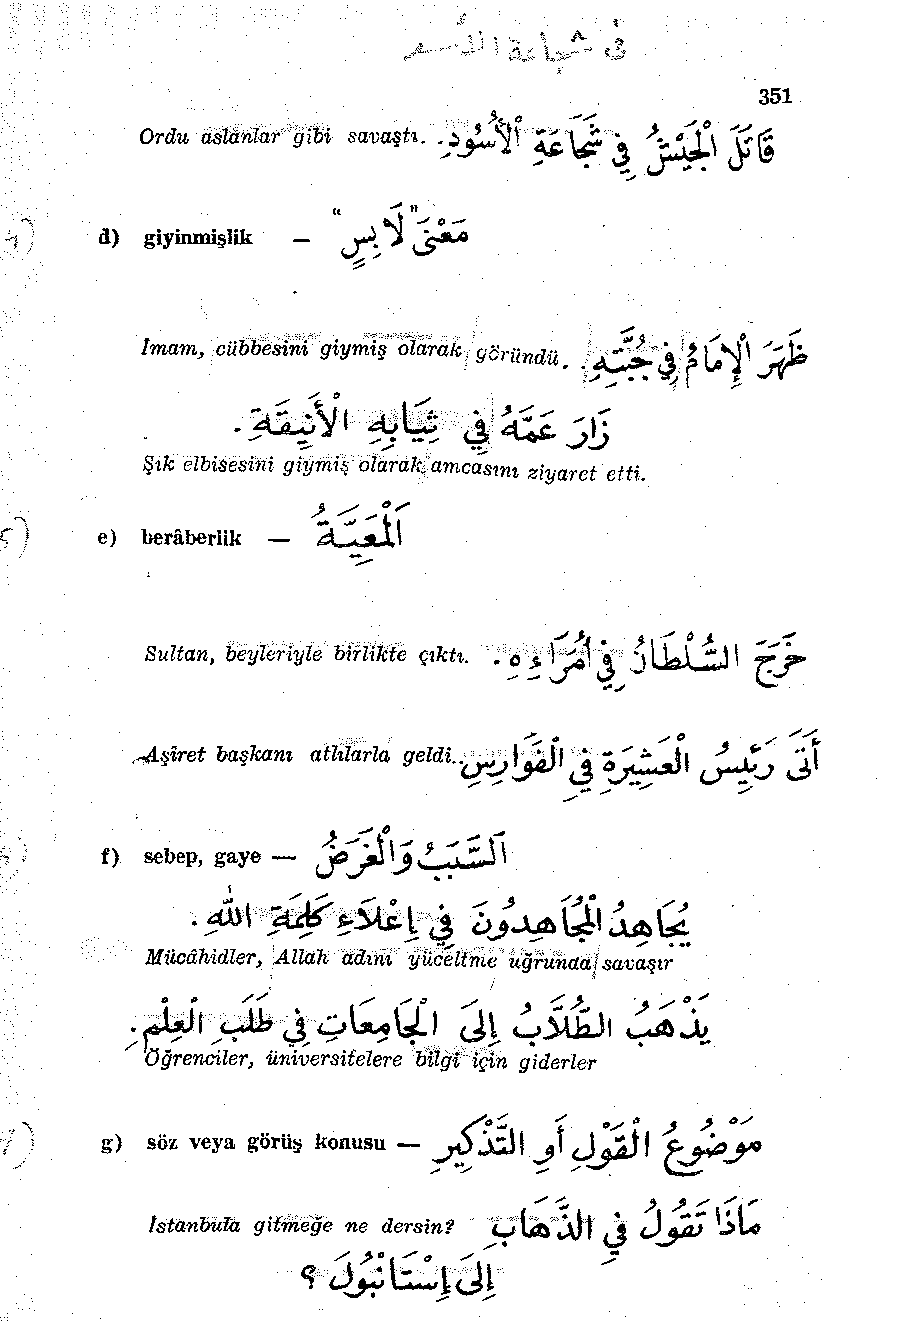 في شجاعة الأسد
351
Ordu aslanlar gibi savaştı. قَاتَلَ الْجَيْشُ فِي شَجَاعَةِ الْأُسُودِ.
d) giyinmişlik — مَعْنَى "لَابِسٍ"
İmam, cübbesini giymiş olarak göründü. ظَهَرَ الْإِمَامُ فِي جُبَّتِهِ.
زَارَ عَمَّهُ فِي ثِيَابِهِ الْأَنِيقَةِ.
Şık elbisesini giymiş olarak amcasını ziyaret etti.
e) berâberlik — اَلْمَعِيَّةُ
Sultan, beyleriyle birlikte çıktı. خَرَجَ السُّلْطَانُ فِي أُمَرَاءِهِ.
Aşiret başkanı atlılarla geldi. أَتَى رَئِيسُ الْعَشِيرَةِ فِي الْفَوَارِسِ.
f) sebep, gaye — اَلسَّبَبُ وَالْغَرَضُ
يُجَاهِدُ الْمُجَاهِدُونَ فِي إِعْلَاءِ كَلِمَةِ اللهِ.
Mücâhidler, Allah adını yüceltme uğrunda savaşır
يَذْهَبُ الطُّلَّابُ إِلَى الْجَامِعَاتِ فِي طَلَبِ الْعِلْمِ.
Öğrenciler, üniversitelere bilgi için giderler
g) söz veya görüş konusu — مَوْضُوعُ الْقَوْلِ أَوِ التَّذْكِيرِ
İstanbula gitmeğe ne dersin? مَاذَا تَقُولُ فِي الذَّهَابِ
إِلَى إِسْتَانْبُولَ ؟